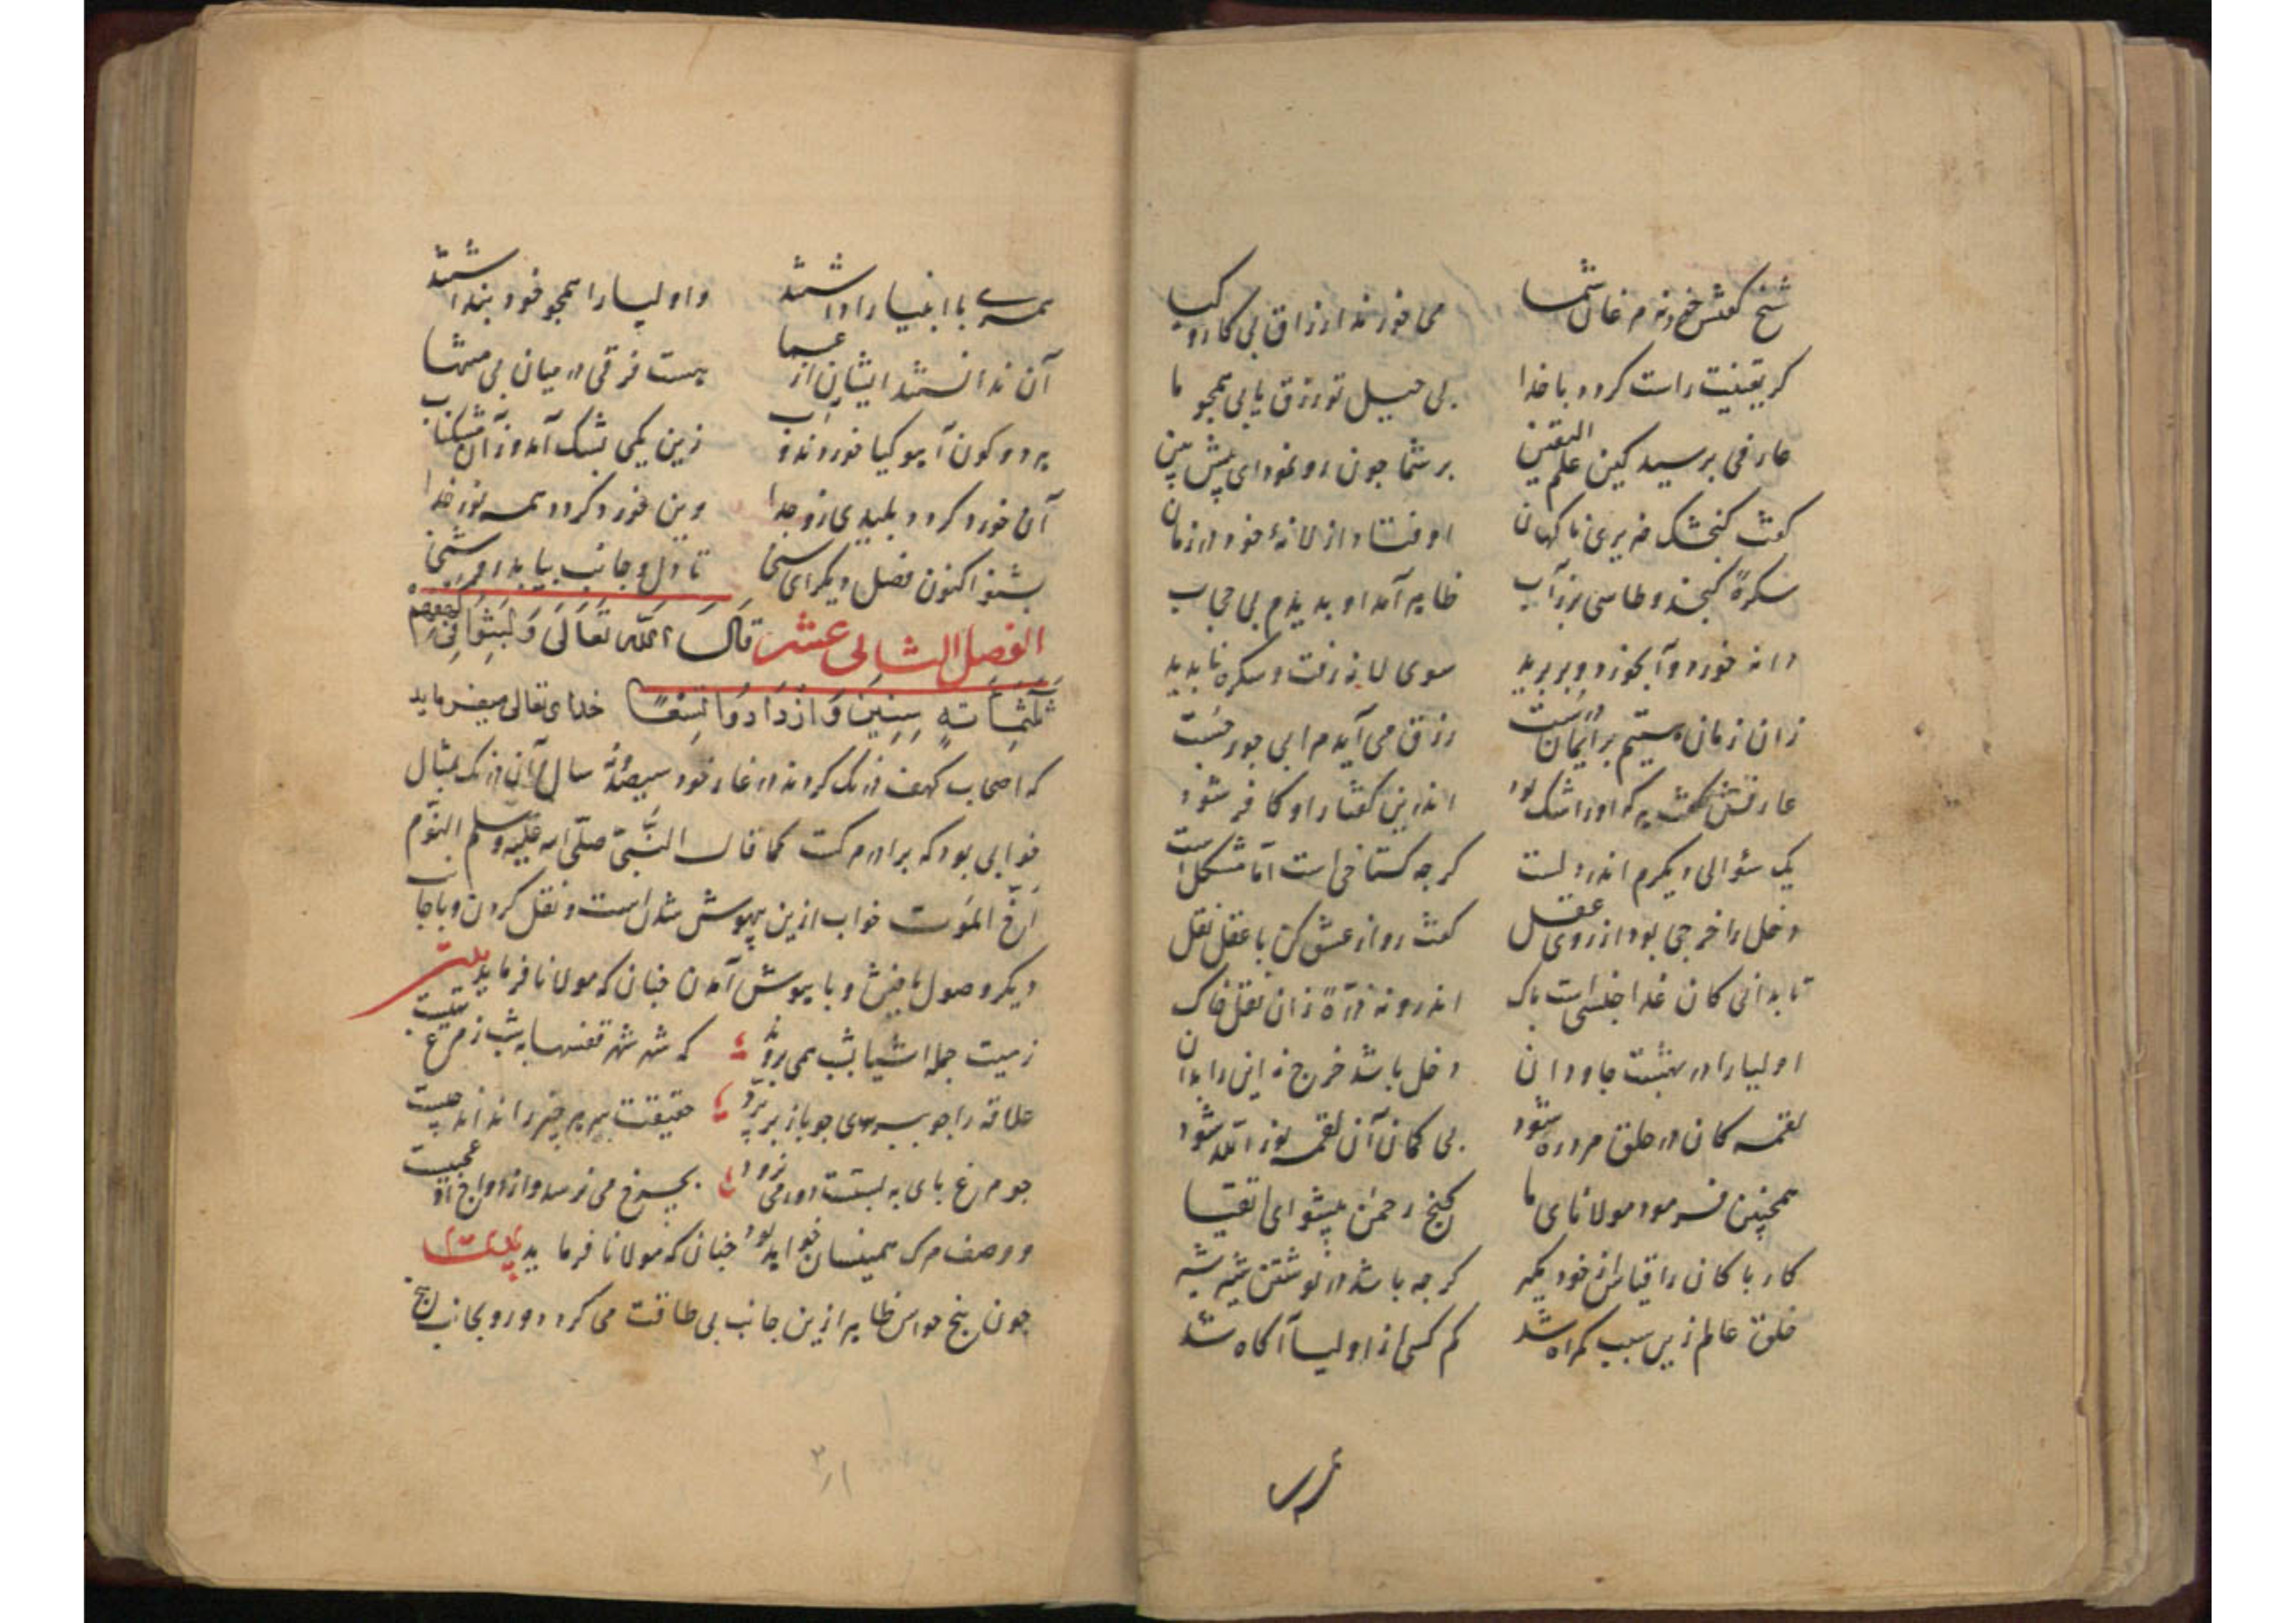 شیخ گفتش خود نه مرغان شما می خورند ارزاق بی کار و کیا
کر یقینیت راست کردد با خدا بی حیل تو رزق یابی همجو ما
عارفی برسید کین علم الیقین بر شما جون رو نمود ای پیش بین
کفت کنجشک ضریری ناکهان اوفتاد از لانهٔ خود در زمان
سکرهٔ کنجد و طاسی بر ز آب ظاهر آمد او بدیدم بی حجاب
دانه خورد و آبخورد و بربرید سوی لانه رفت و سکره نابدید
زان زمان هستیم بر ایمان درست رزق می آیدم ابی جور جست
عارفش کفت هر که او را شک بود اندرین کفتار او کافر شود
یک سؤالی دیکرم اندر دلست کرجه کستاخی است اما مشکل است
دخل را خرجی بود از روی عقل کفت رو از عشق کن با عقل نقل
تا بدانی کان غذا جنسی است باک اندرو نه ذرهٔ زان نقل خاک
اولیا را در بهشت جاودان دخل باشد خرج نه این را بدان
لقمه کان در حلق مرد ره شود بی کمان آن لقمه نور الله شود
همچنین فرمود مولانای ما کنج رحمن پیشوای اتقیا
کار باکان را قیاس از خود مکیر کرجه باشد در نوشتن شیر شیر
خلق عالم زین سبب کمراه شد کم کسی ز اولیا آکاه شد
همسری با انبیا را داشتند و اولیا را همجو خود بنداشتند
آن ندانستند ایشان از عما هست فرقی در میان بی منتها
هر دو کون آهو کیا خوردند و آب زین یکی بشک آمد و زآن مشکناب
آن خورد کردد بلیدی زو جدا وین خورد کردد همه نور خدا
بشنو اکنون فصل دیکر ای سخی تا دل و جانب بیابد
الفصل الثانی عشر قال الله تعالی ولبثوا فی کهفهم
ثلثمائة سنین وازدادوا تسعا خدای تعالی میفرماید
که اصحاب کهف درنک کردند در غار خود سیصد و نه سال آن درنک بمثال
خوابی بود که برادر مرکت کما قال النبی صلی الله علیه وسلم النوم
اخ الموت خواب ازین بیهوش شدن است و نقل کردن و باجانب
دیکر وصول یافتن و با هوش آمدن جنان که مولانا فرماید بیت
زمیت جمله اشیا بشب همی رود که شه شه قفسها بشب ز مرغ تهیست
علاقه را جو سوی جو باز بربرد حقیقت هر چیز را نداند چیست
جو مرغ بای به بستت دور می نرود بچرخ می نرسد و از دوار او عجبیست
و وصف مرک همینسان خواهد بود جنان که مولانا فرماید بیت
جون بنج حواس ظاهر ازین جانب بی طاقت می کردد و رو بجانب